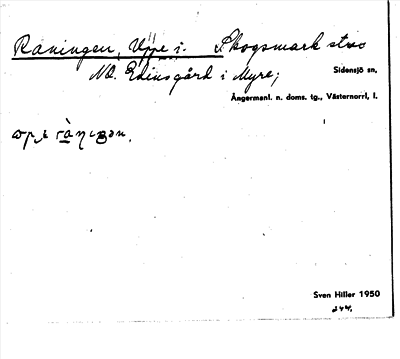 Raningen, Uppe i. Skogsmark str.
NO. Edinsgård i Myre;
Sidensjö sn,
Ångermanl. n. doms. tg., Västernorrl, l.
Sven Hiller 1950